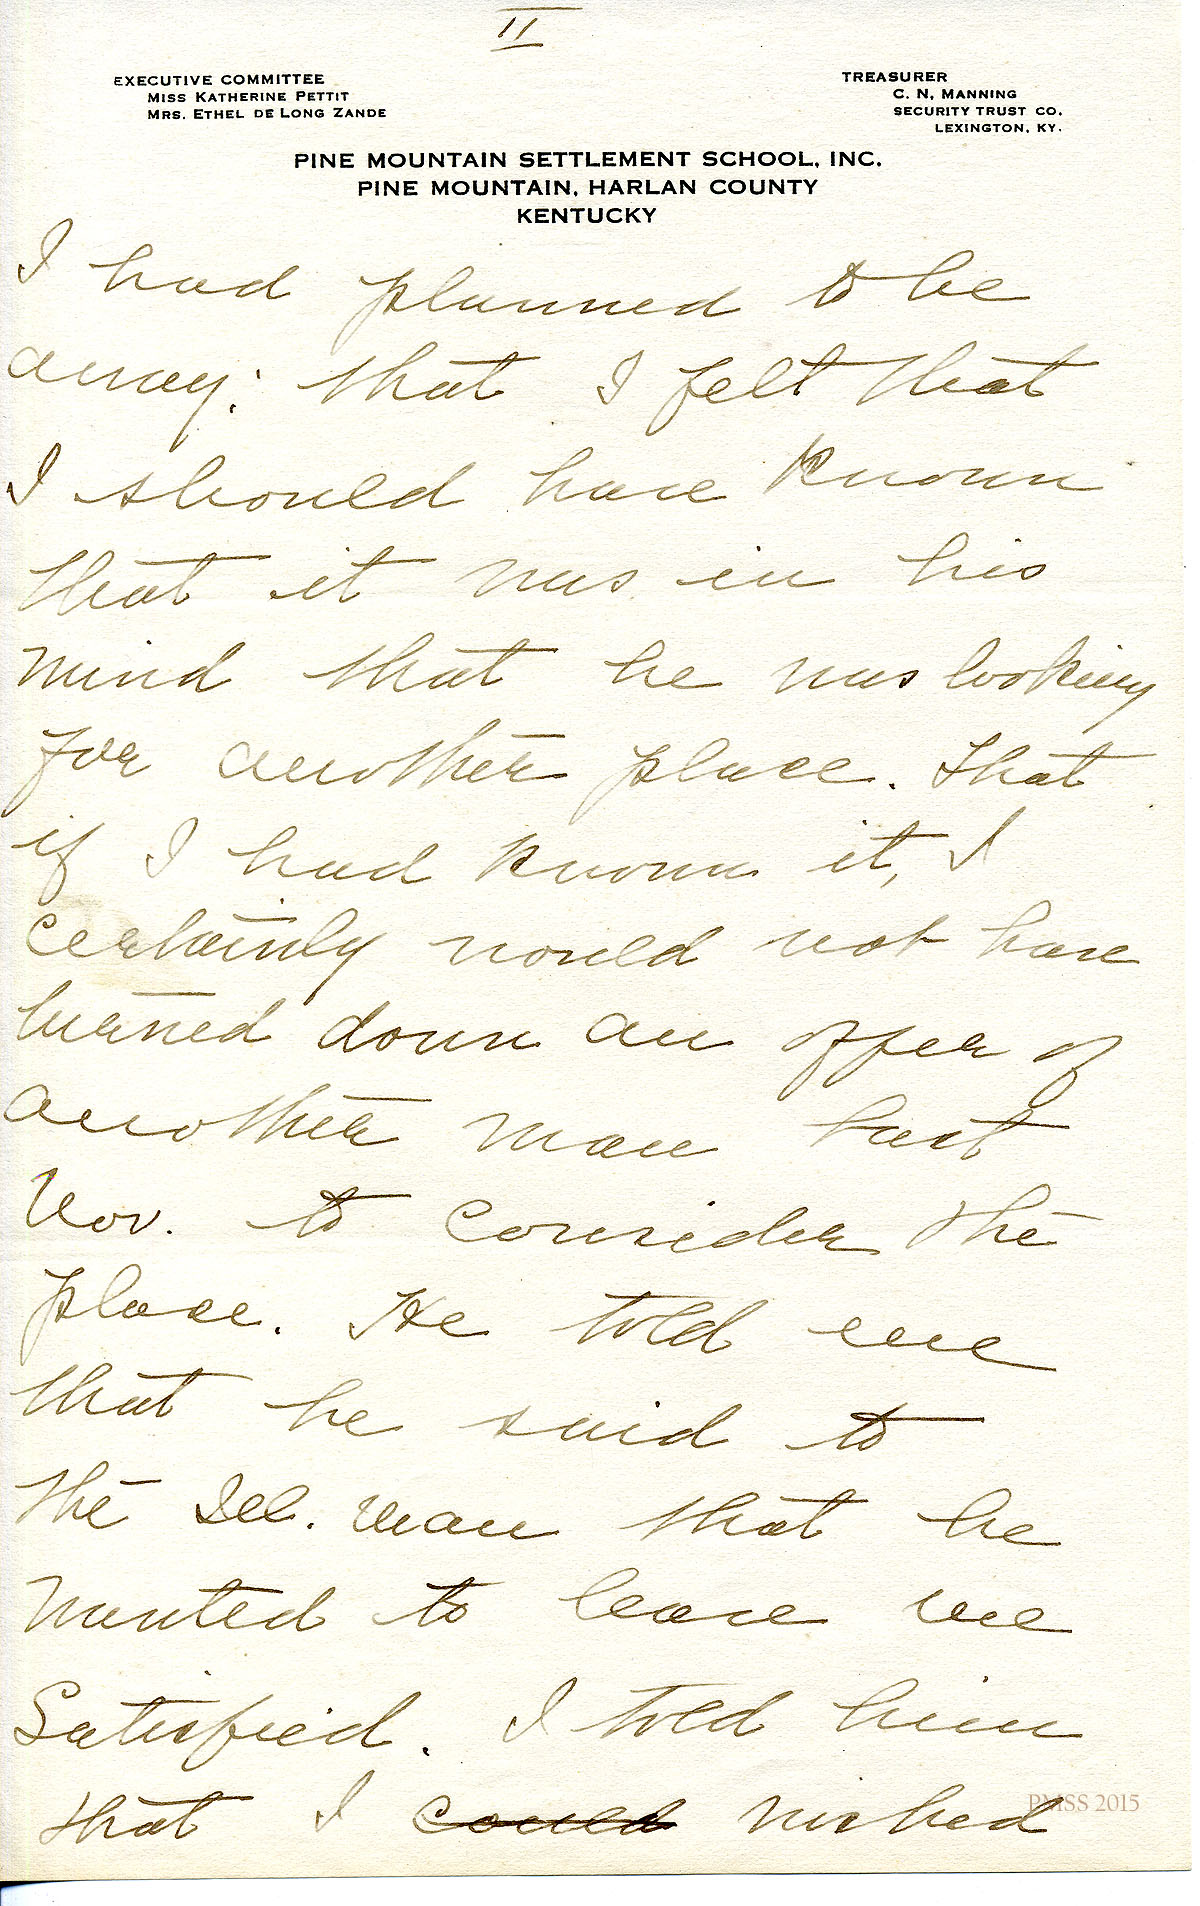 II
EXECUTIVE COMMITTEE
MISS KATHERINE PETTIT
MRS. ETHEL DE LONG ZANDE
TREASURER
C. N. MANNING
SECURITY TRUST CO.
LEXINGTON, KY.
PINE MOUNTAIN SETTLEMENT SCHOOL, INC.
PINE MOUNTAIN, HARLAN COUNTY
KENTUCKY
I had planned to be
away: that I felt that
I should have known
that it was in his
mind that he was looking
for another place. That
if I had known it, I
certainly would not have
turned down an offer of
another man last
Nov. to consider the
place. He told me
that he said to
the Ill. man that he
wanted to leave we
Satisfied. I told him
that I could wished
PMSS 2015